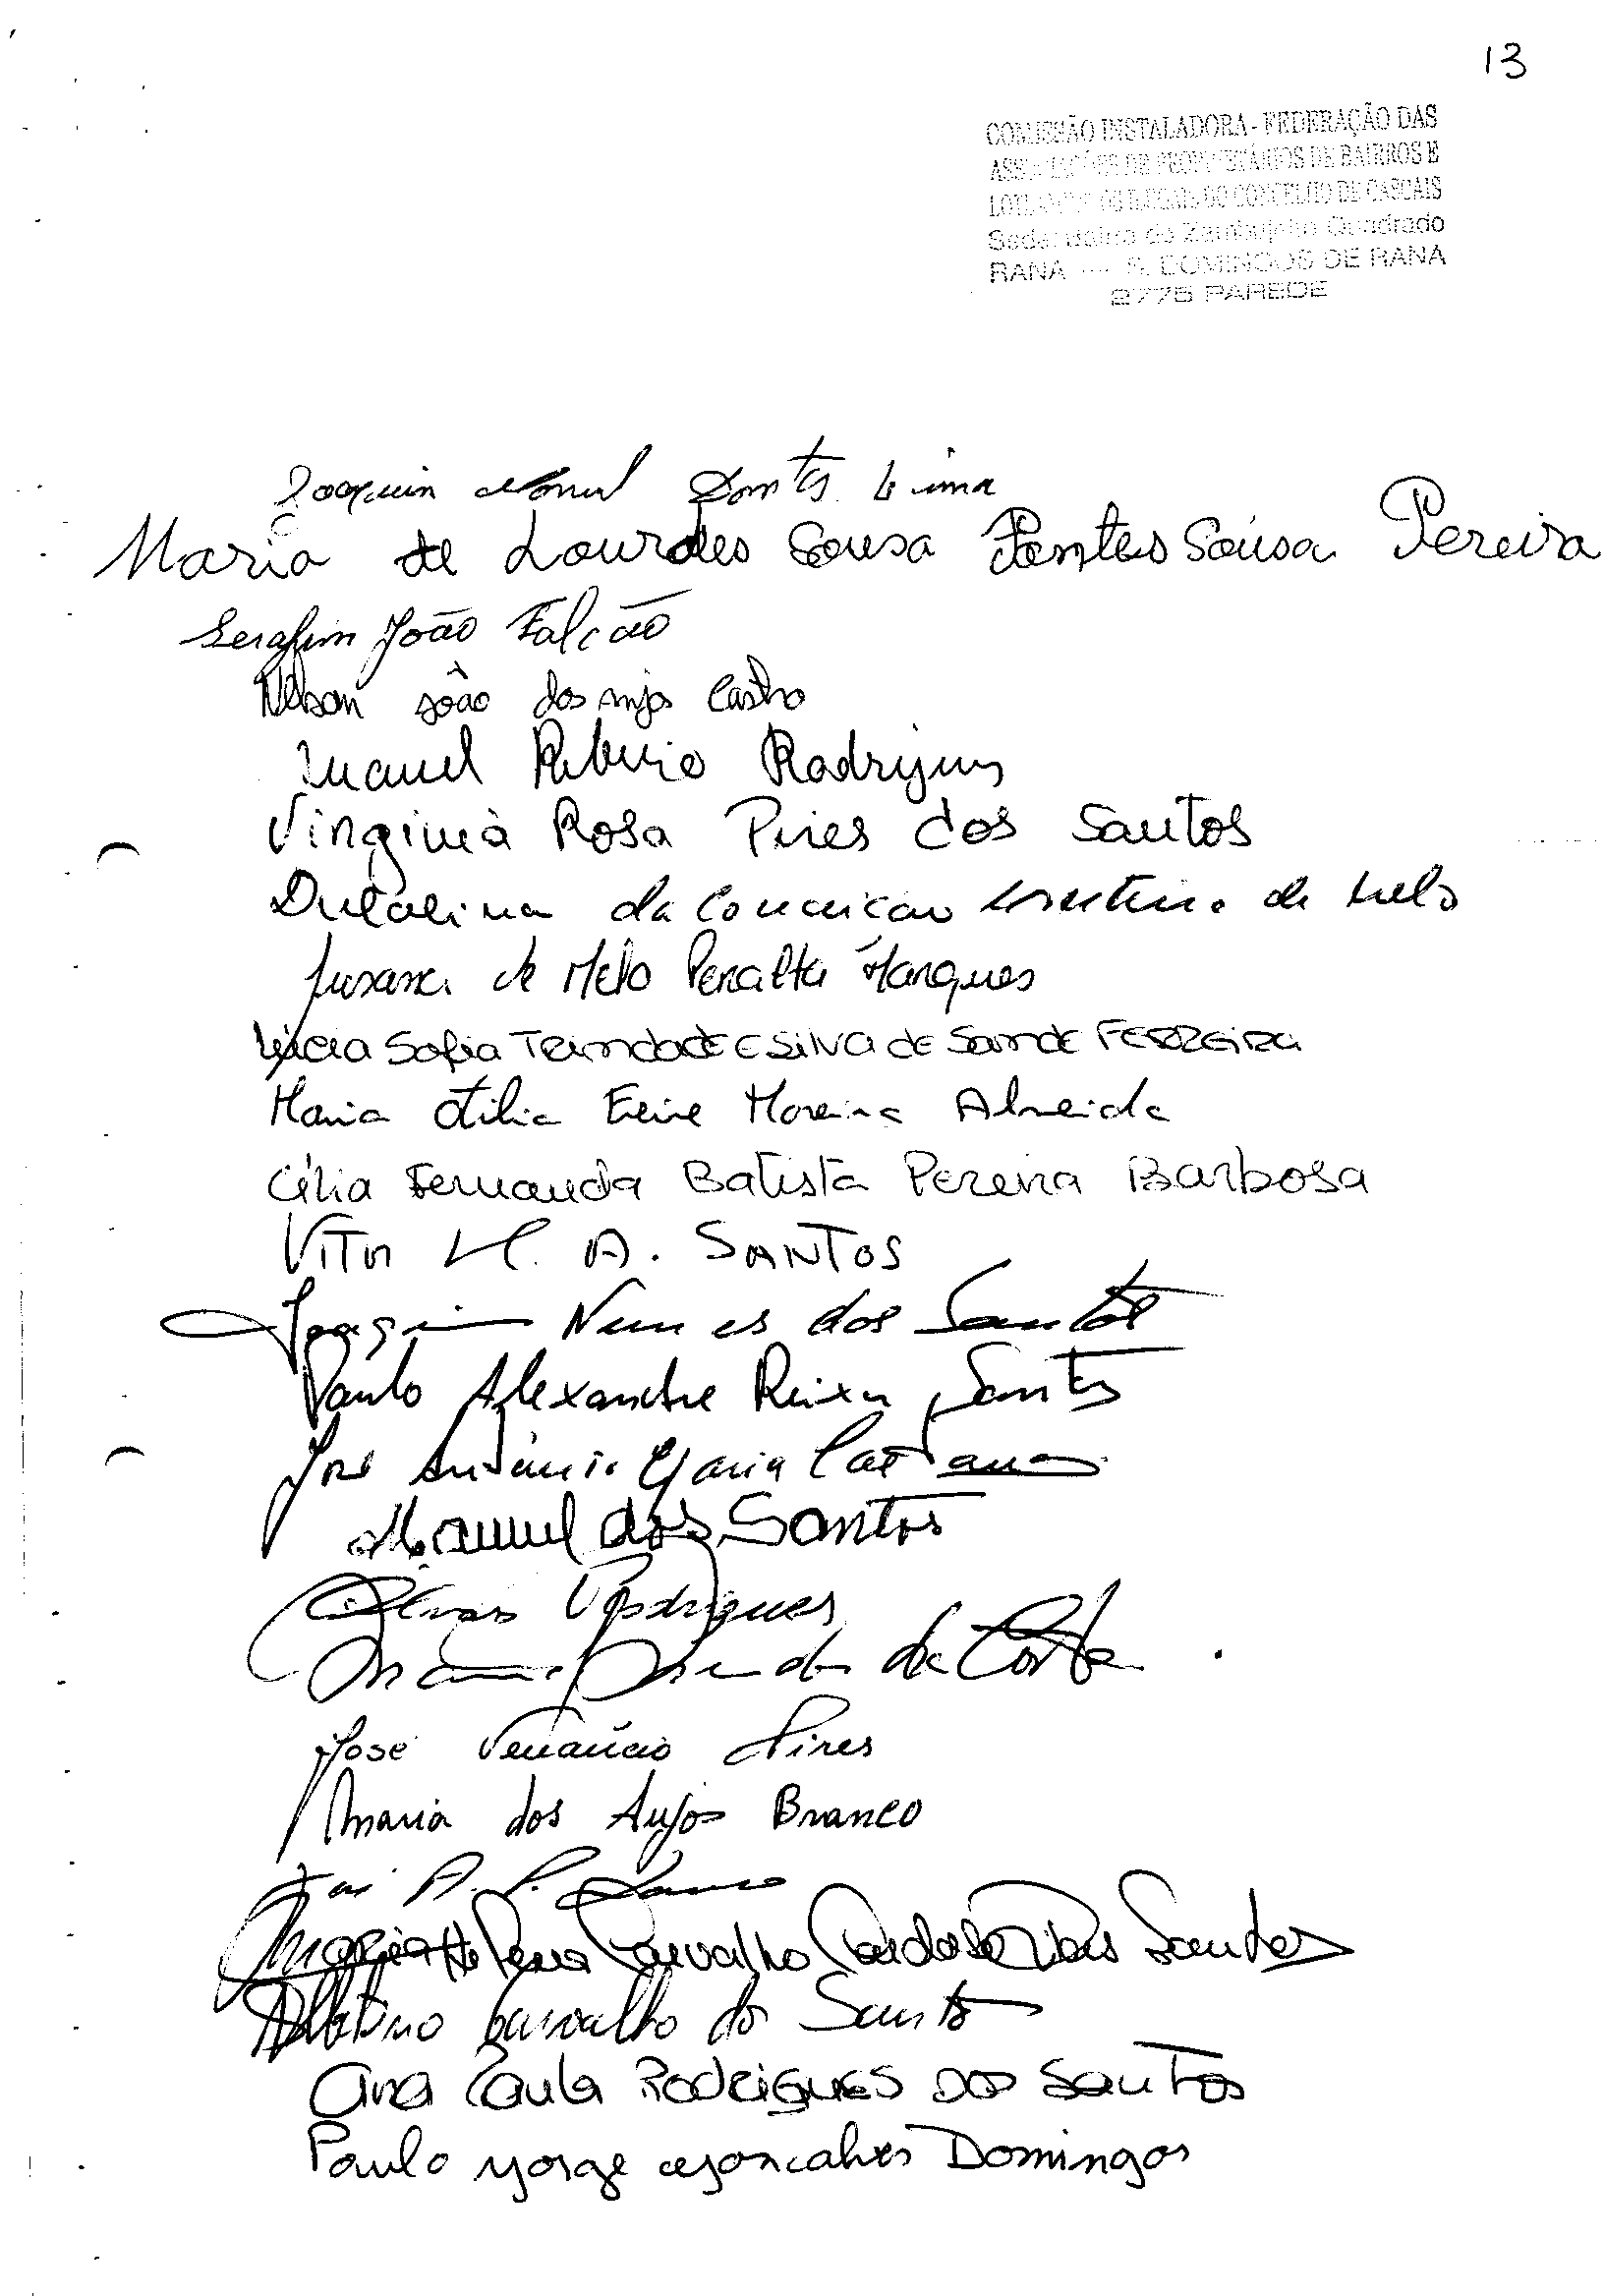 13
COMISSÃO INSTALADORA - FEDERAÇÃO DAS
ASSOCIAÇÕES DE PROPRIETÁRIOS DE BAIRROS E
LOTEAMENTOS ILEGAIS DO CONCELHO DE CASCAIS
Sede: Bairro do Zambujeiro Quadrado
RANA — S. DOMINGOS DE RANA
2775 PAREDE
Joaquim Manuel Lima
Maria de Lourdes Sousa Pontes Sousa Pereira
Serafim João Falcão
Nelson João dos Anjos Castro
Manuel Ribeiro Rodrigues
Virginia Rosa Pires dos Santos
da Conceicao de Melo
Susana de Melo Peralta Marques
Lúcia Sofia Trindade e Silva de Sande FERREIRA
Maria Otilia Freire Moreira Almeida
Célia Fernanda Batista Pereira Barbosa
VITOR M. A. SANTOS
Joaquim Nunes dos Santos
Paulo Alexandre Santos
José António Maria
Manuel dos Santos
Rodrigues
da Costa
José Venâncio Pires
Maria dos Anjos Branco
A. P.
Maria Helena Carvalho Cardoso Dias Santos
Carvalho dos Santos
Ana Paula Rodrigues dos Santos
Paulo Jorge Goncalves Domingos